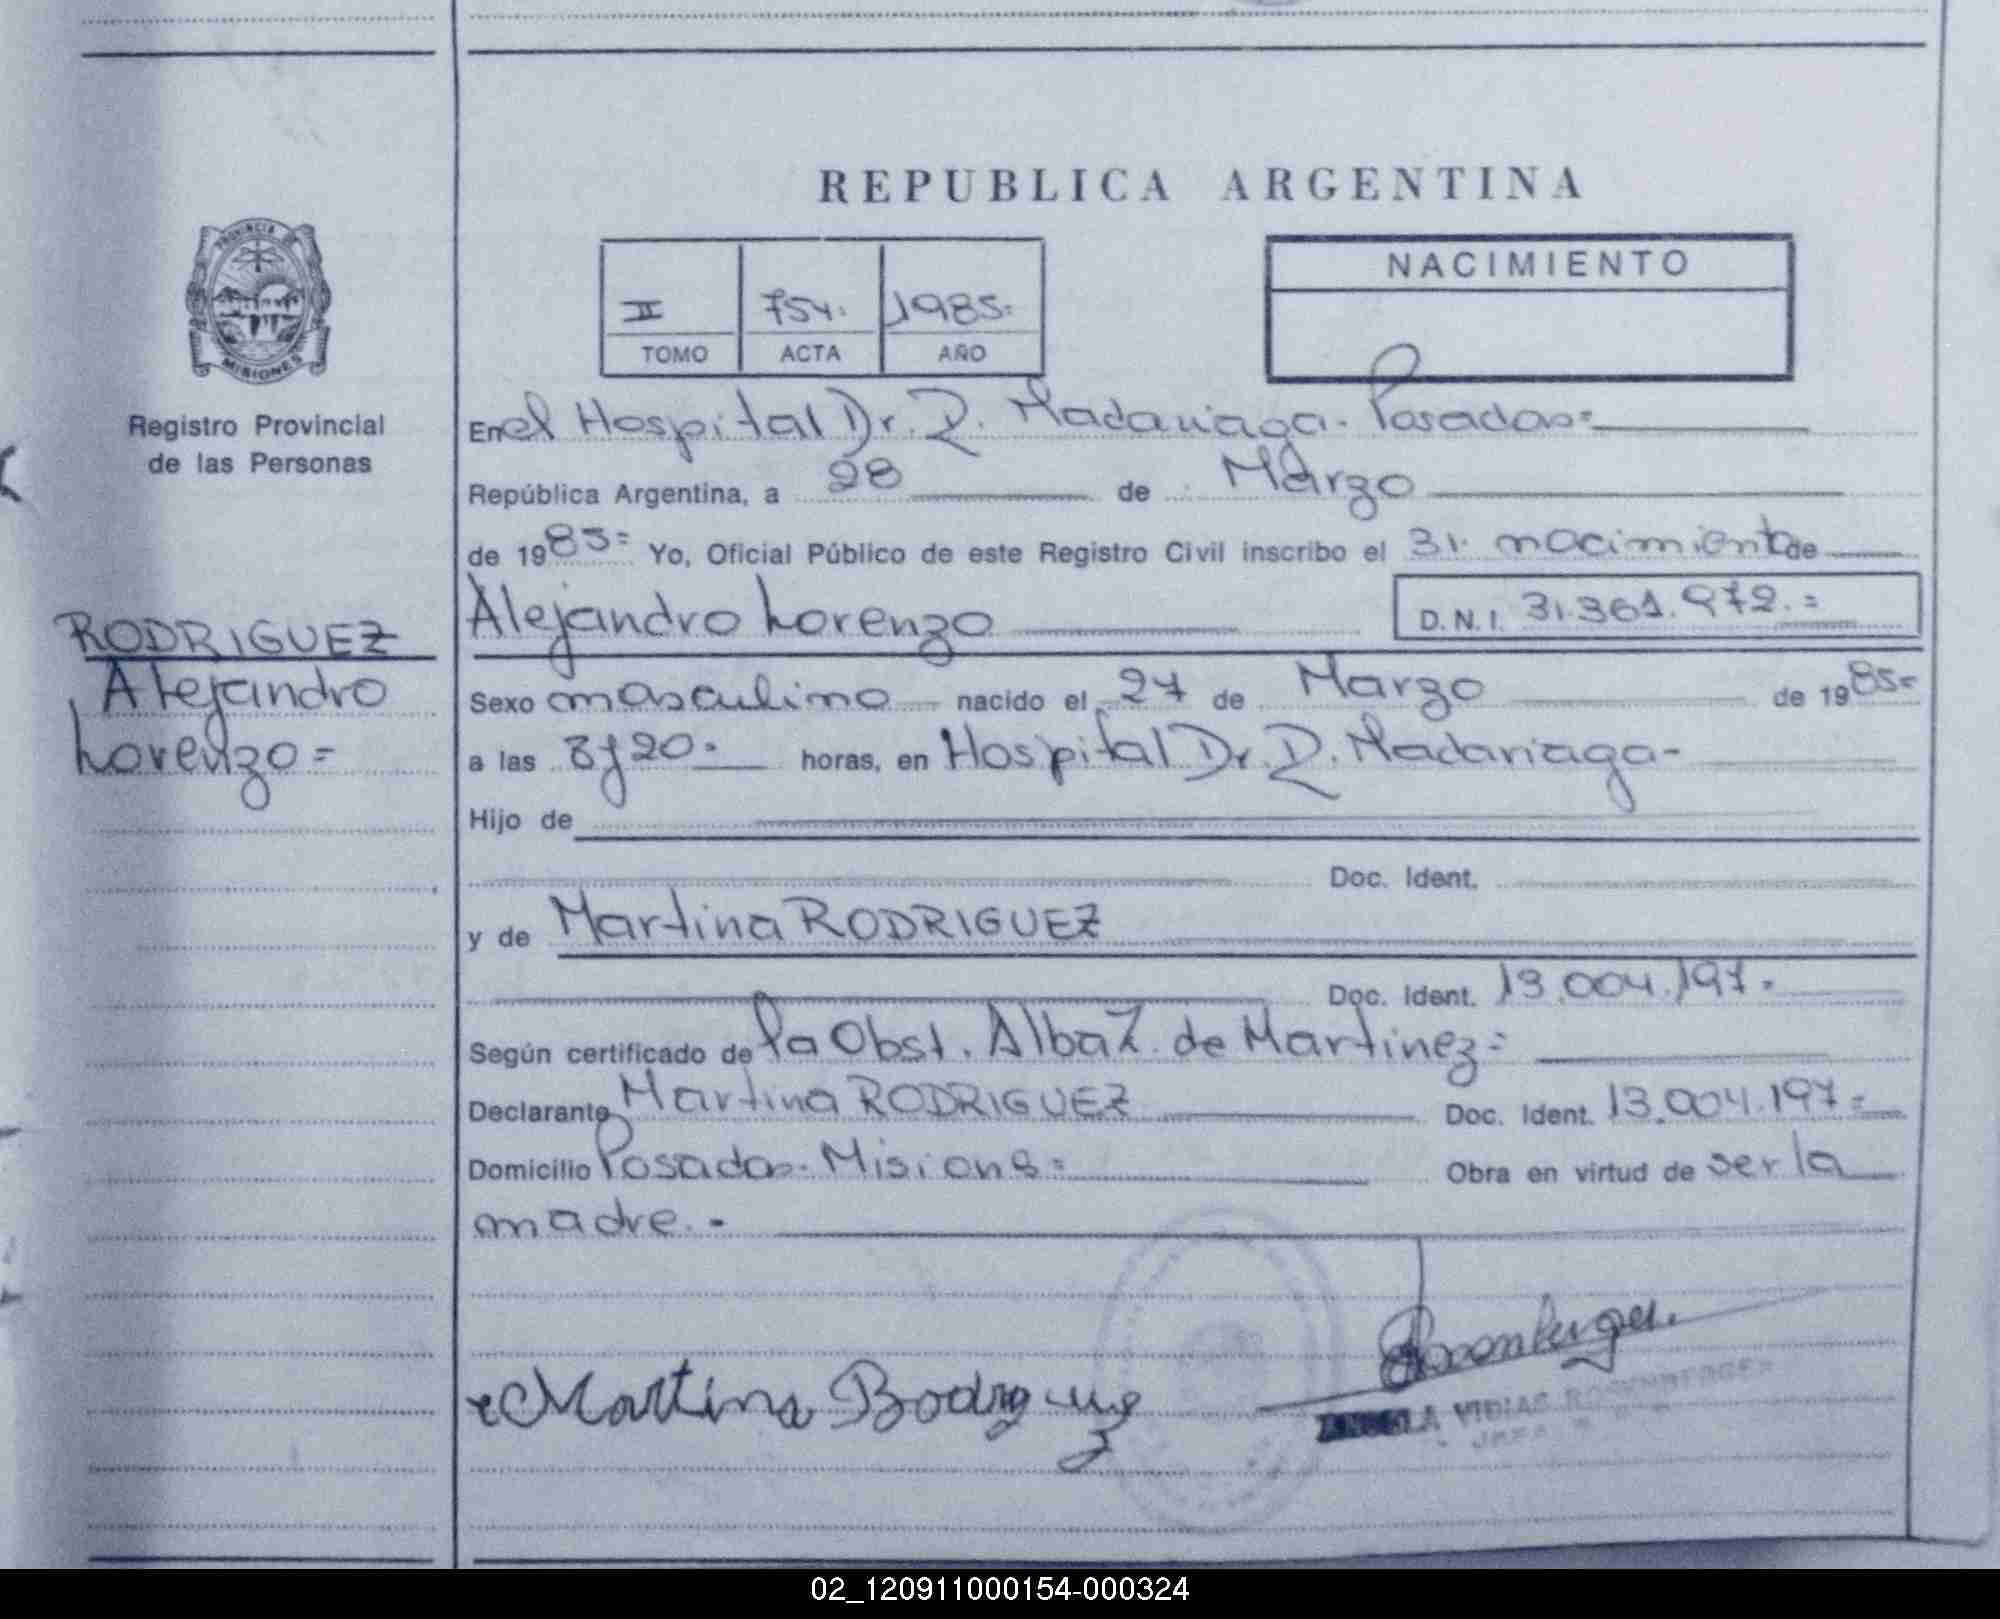 REPUBLICA ARGENTINA
PROVINCIA DE MISIONES
Registro Provincial
de las Personas
II 754. 1985.
TOMO ACTA AÑO
NACIMIENTO
En el Hospital Dr. R. Madariaga. Posadas=
República Argentina, a 28 de Marzo
de 1985= Yo, Oficial Público de este Registro Civil inscribo el 31. nacimiento de
RODRIGUEZ
Alejandro
Lorenzo=
Alejandro Lorenzo D.N.I. 31.361.972.=
Sexo masculino nacido el 27 de Marzo de 1985=
a las 3y20. horas, en Hospital Dr. R. Madariaga-
Hijo de
Doc. Ident.
y de Martina RODRIGUEZ
Doc. Ident. 13.004.197.
Según certificado de la Obst. Alba Z. de Martinez=
Declarante Martina RODRIGUEZ Doc. Ident. 13.004.197=
Domicilio Posadas. Misions= Obra en virtud de ser la
madre.-
Martina Rodriguez
VIDIAS ROSENBERGER
02_120911000154-000324